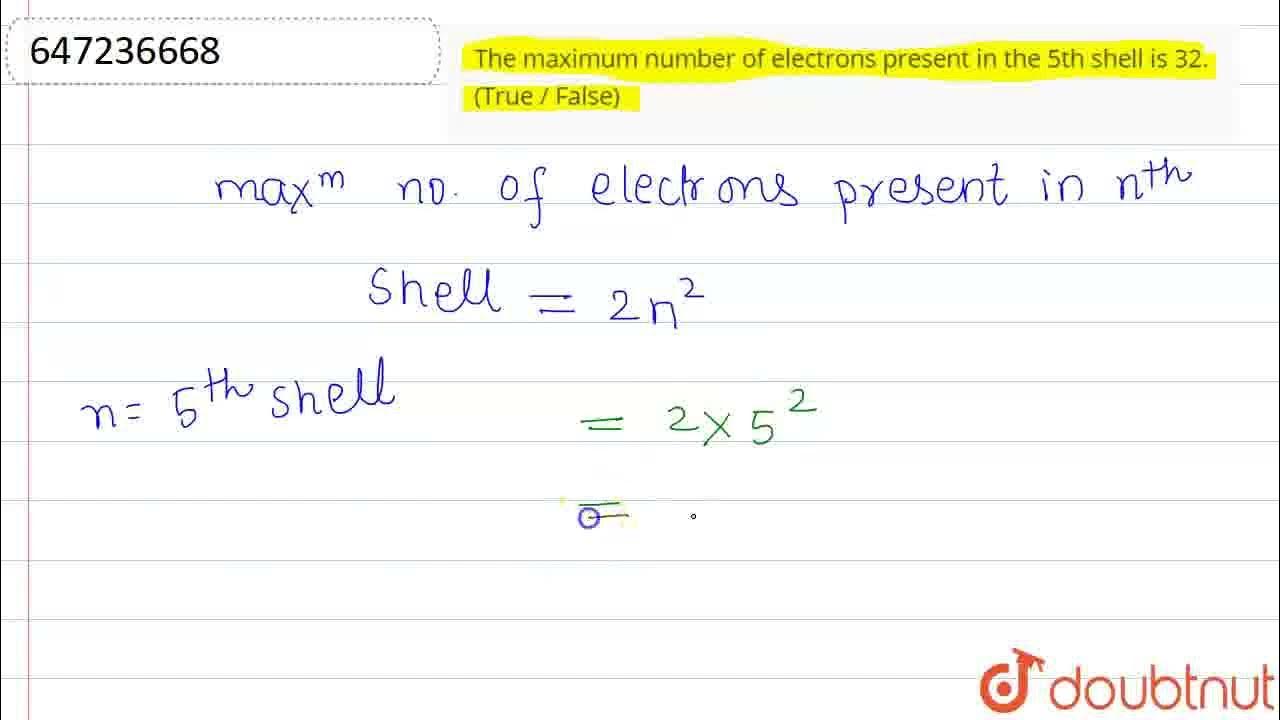 647236668
The maximum number of electrons present in the 5th shell is 32.
(True / False)
maxᵐ no. of electrons present in nᵗʰ
Shell = 2n²
n= 5ᵗʰ shell
= 2×5²
=
doubtnut